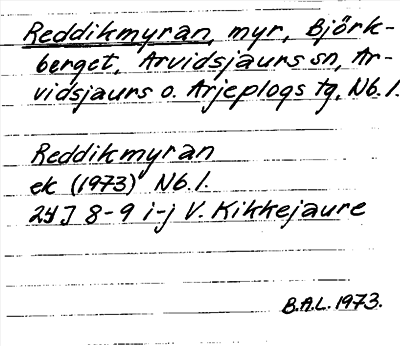 Reddikmyran, myr, Björk-
berget, Arvidsjaurs sn, Ar-
vidsjaurs o. Arjeplogs tg, Nb. l.
Reddikmyran
ek (1973) Nb. l.
24J 8-9 i-j V. Kikkejaure
B.A.L. 1973.